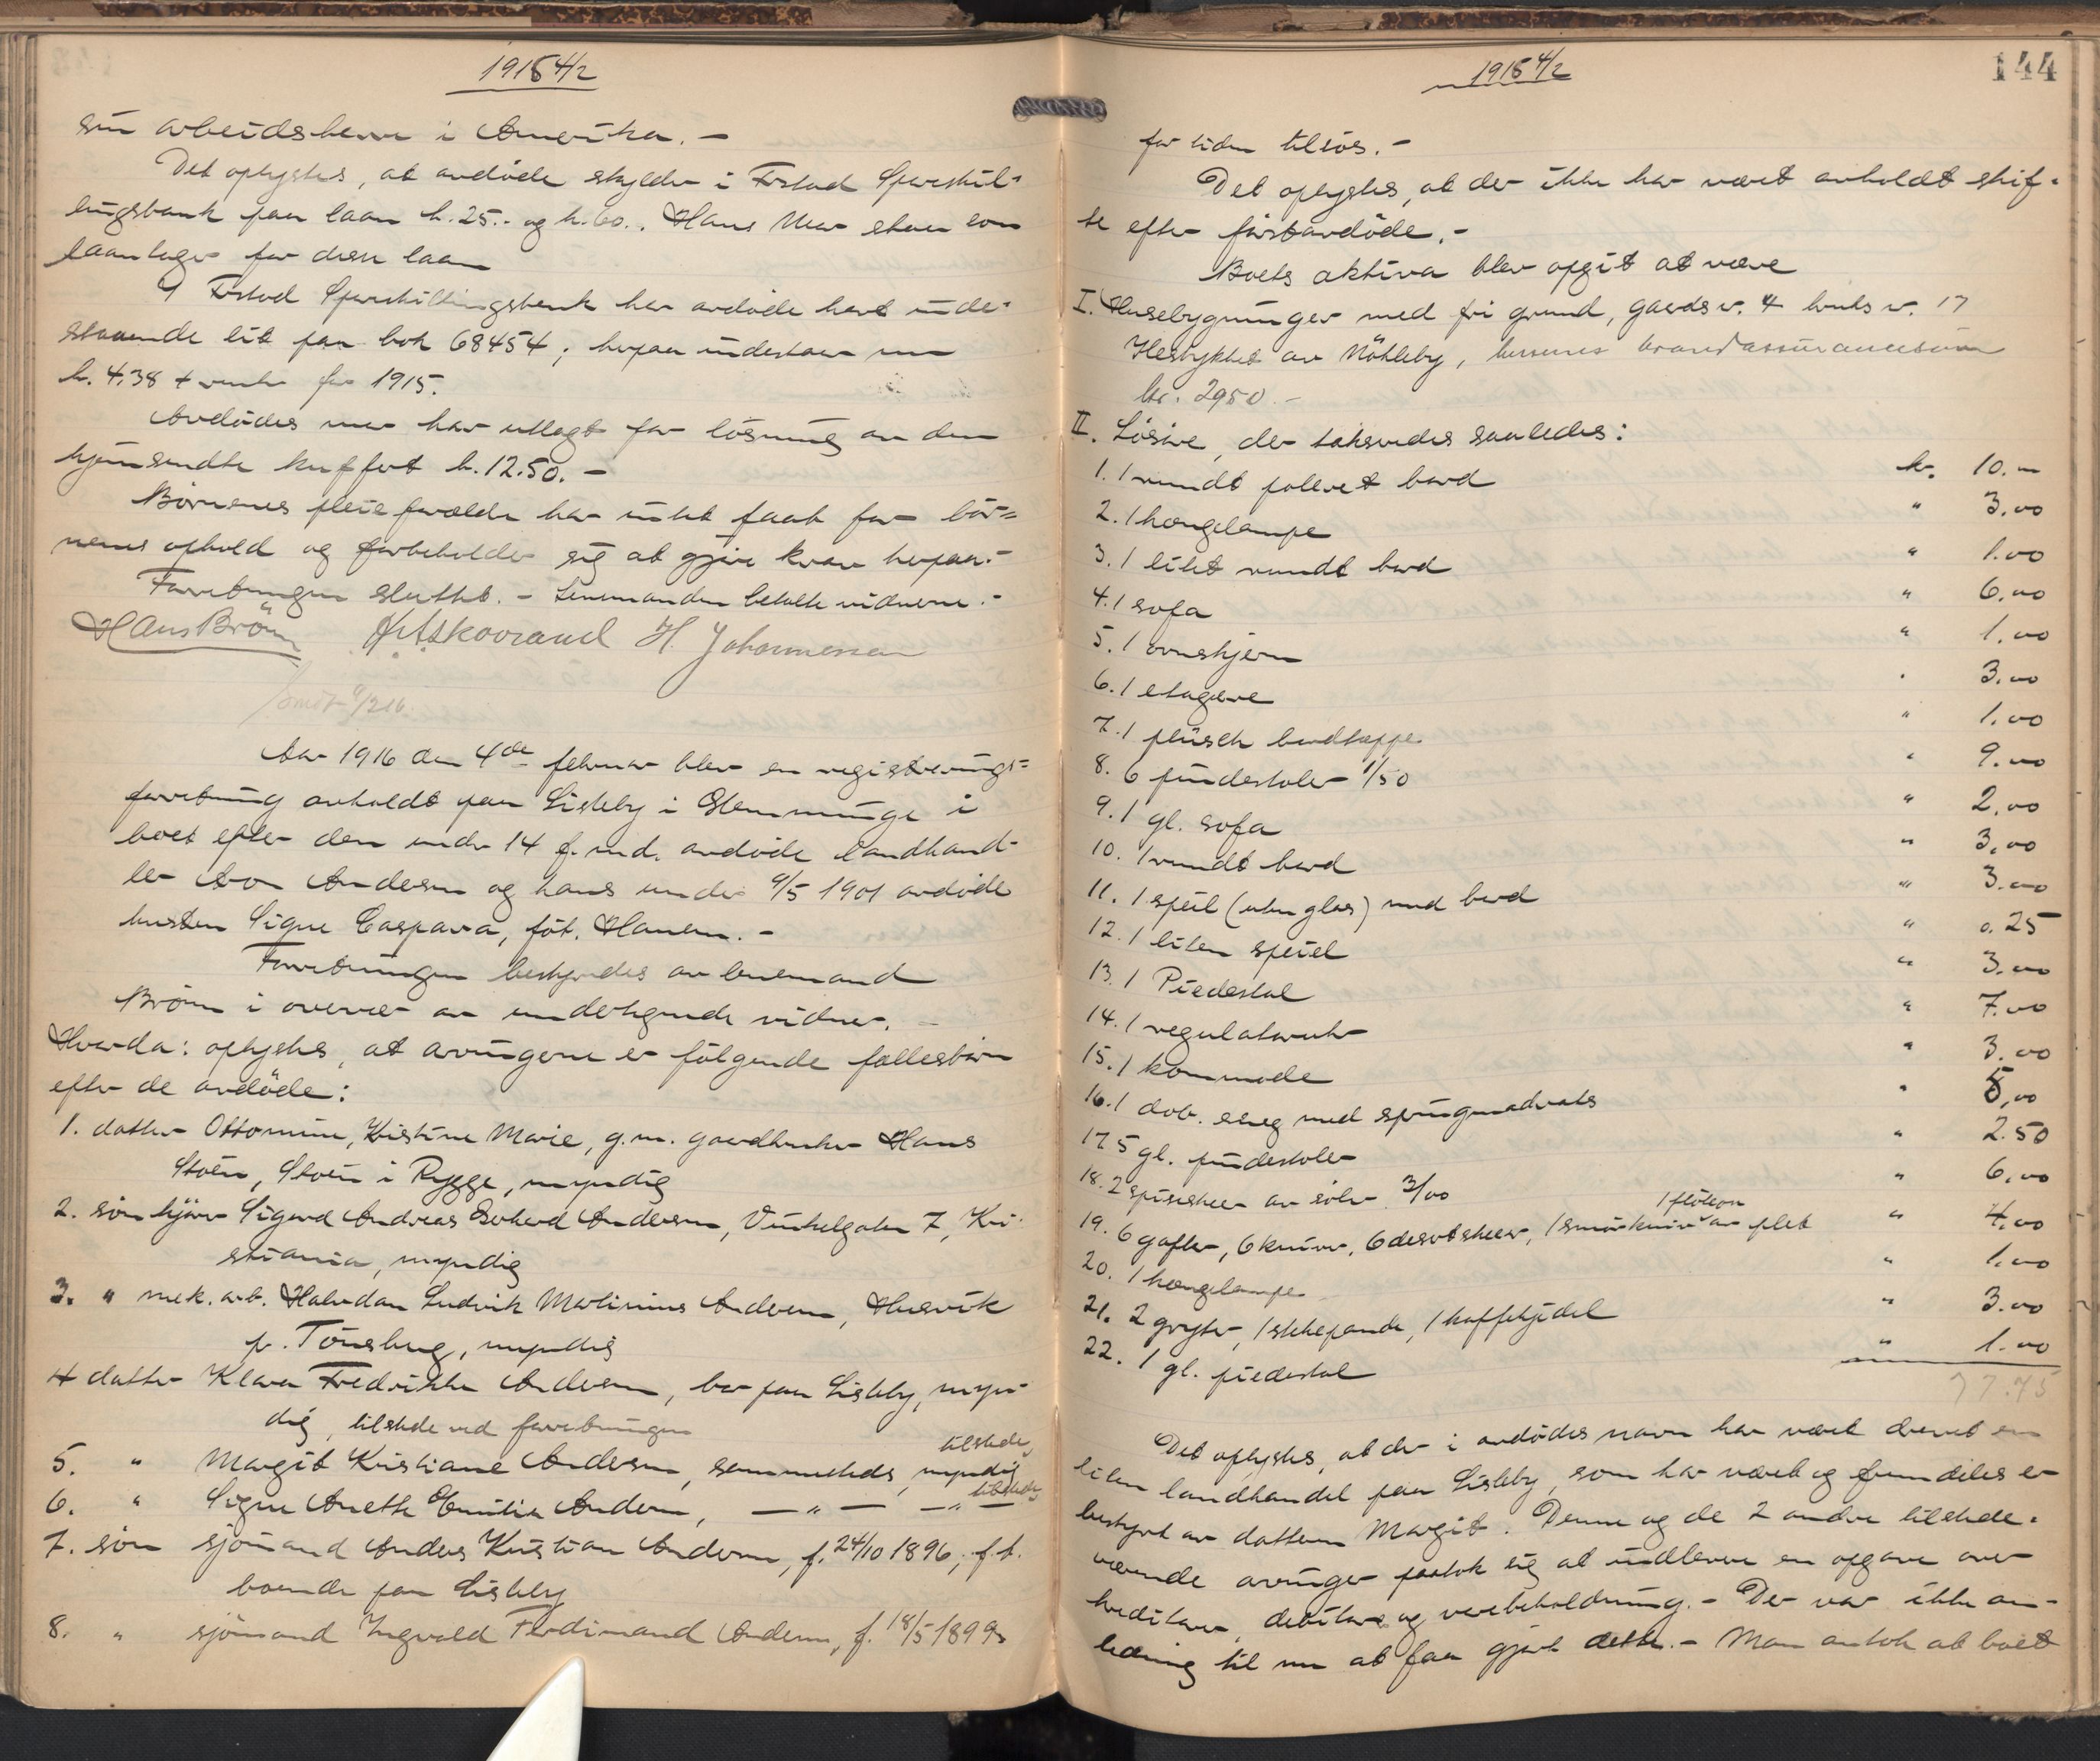 1916 4/2
sin arbeidsherre i Amerika. -
Det oplystes, at avdöde skylder i F.stad Spareskil-
lingsbank paa laan k. 25.- og k. 60.. Hans mor staar som
laantager for disse laan
I F.stad Spareskillingsbank har avdöde havt inde-
staaende litt paa bok 68454; herpaa indestaar nu
k. 4.38 + renter for 1915.
Avdödes mor har utlagt for lösning av den
hjemsendte kuffert k. 12.50. -
Börnenes pleieforældre har intet faat for bör-
nenes ophold og forbeholder sig at gjöre krav herpaa.-
Forretningen sluttet. - Lensmanden betalte vidnerne.-
Hans Bröm H. Johannessen
Aar 1916 den 4de februar blev en registrerings-
forretning avholdt paa Lisleby i Glemminge i
boet efter den under 14 f. md. avdöde landhand-
ler Aron Andersen og hans under 9/5 1901 avdöde
hustru Signe Caspara, föt. Hansen. -
Forretningen bestyredes av lensmand
Bröm i overvær av undertegnede vidner. -
Hvorda: oplystes, at arvingerne er fölgende fællesbörn
efter de avdöde:
1. datter Ottomine, Kristine Marie, g. m. gaardbruker Hans
Stöen, Stöen i Rygge, myndig
2. sön Sigurd Andreas Andersen, Vinkelgaten 7, Kri-
stiania, myndig
3. " mek. arb. Halvdan Ludvik Martinius Andersen, Husvik
p. Tönsberg, myndig
4 datter Klara Fredrikke Andersen, bor paa Lisleby, myn-
dig, tilstede ved forretningen
5. " Margit Kristiane Andersen, sammesteds, myndig tilstede
6. " Signe Anette Emilie Andersen, - " - - " - tilstede
7. sön sjömand Anders Kristian Andersen, f. 24/10 1896, f. t.
boende paa Lisleby
8. " sjömand Ingvald Ferdinand Andersen, f. 18/5 1899
1916 4/2
144
for tiden tilsös. -
Det oplystes, at der ikke har været avholdt skif-
te efter förstavdöde. -
Boets aktiva blev opgit at være
I. Husebygninger med fri grund, gaardsnr. 4 bruksnr. 17
av Nökleby, husenes brandassurancesum
kr. 2950.-
II. Lösöre, der takseredes saaledes:
1. 1 rundt poleret bord kr. 10.-
2. 1 hængelampe " 3.00
3. 1 litet rundt bord " 1.00
4. 1 sofa " 6.00
5. 1 ovnskjerm " 1.00
6. 1 etagere " 3.00
7. 1 plüsch bordteppe " 1.00
8. 6 pindestoler 1/50 " 9.00
9. 1 gl. sofa " 2.00
10. 1 rundt bord " 3.00
11. 1 speil (uten glas) med bord " 3.00
12. 1 liten speiel " 0.25
13. 1 Piedestal " 3.00
14. 1 regulatoruhr " 7.00
15. 1 kommode " 3.00
16. 1 dob. seng med springmadrats " 5.00
17. 5 gl. pindestoler " 2.50
18. 2 spiseskeer av sölv 3/00 " 6.00
19. 6 gafler, 6 kniver, 6 desertskeer, 1 smörkniv 1 av plet " 4.00
20. 1 hængelampe " 1.00
21. 2 gryter, 1 stekepande, 1 kaffekjedel " 3.00
22. 1 gl. piedestal " 1.00
77.75
Det oplystes, at der i avdödes navn har været drevet en
liten landhandel paa Lisleby, som har været og fremdeles er
bestyret av datteren Margit. Denne og de 2 andre tilstede-
værende arvinger paatok sig at indlevere en opgave over
kreditorer, debitorer og varebeholdning. - Der var ikke an-
ledning til nu at faa gjort dette. - Man antok at boet